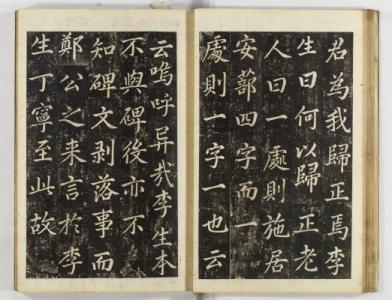 君為我歸正焉李
生曰何以歸正老
人曰一處則施居
安節四字而一
處則一字一也云
云嗚呼异哉李生本
不與碑後亦不
知碑文剥落事而
鄭公之来言於李
生丁寧至此故